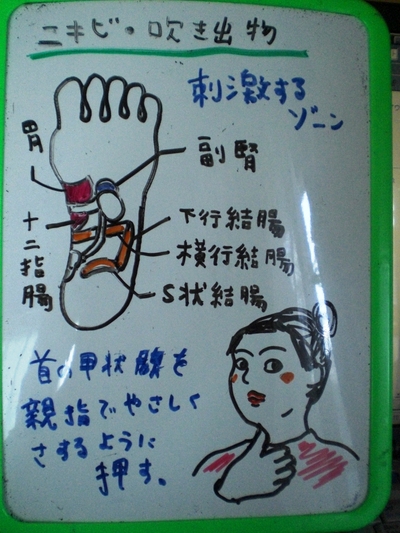 ニキビ・吹き出物
刺激する
ゾーン
胃
副腎
十二指腸
下行結腸
横行結腸
S状結腸
首の甲状腺を
親指でやさしく
さするように
押す。